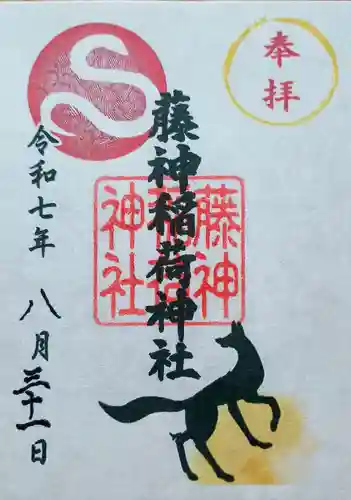 奉拝
藤神稲荷神社
藤神稲荷神社
令和七年
八月三十一日